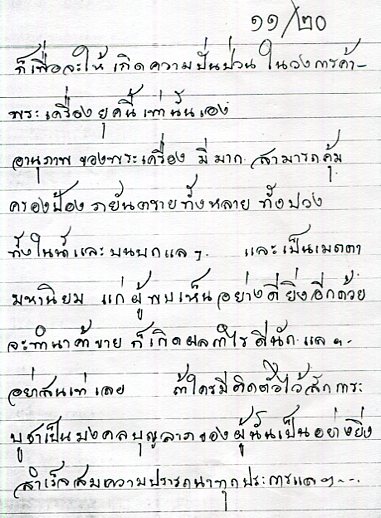 ๑๑/๒๐
ก็เพื่อจะให้ เกิดความปั่นป่วน ในวงการค้า-
พระเครื่อง ยุคนี้ เท่านั้นเอง
อานุภาพ ของพระเครื่อง มีมาก สามารถคุ้ม
ครองป้อง ภยันตรายทั้งหลาย ทั้งปวง
ทั้งในน้ำและบนบกแลฯ และเป็นเมตตา
มหานิยม แก่ผู้พบเห็นอย่างดียิ่งอีกด้วย
จะทำนาค้าขาย ก็เกิดผลกำไรดีนัก แลฯ
อย่าสนเท่เลย ถ้าใครมีติดตัวไว้สักการะ
บูชาเป็นมงคลบุญลาภของผู้นั้นเป็นอย่างยิ่ง
สำเร็จสมความปรารถนาทุกประการแลฯ---